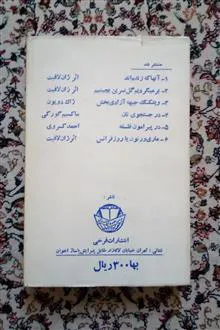 منتشر شده
۱ـ آنها که زنده‌اند اثر ژان لافیت
۲ـ برمیگردیم گل نسرین بچینیم اثر ژان لافیت
۳ـ ویتنکنگ جبهه آزادی‌بخش ژاک دویون
۴ـ در جستجوی نان ماکسیم گورکی
۵ـ در پیرامون فلسفه احمد کسروی
۶ـ ماری‌ورنون یا روز فرانس اثر ژان لافیت
ناشر :
انتشارات فرخی
نشانی : تهران خیابان لاله‌زار مقابل پیرایش پاساژ اخوان
بها ۳۰۰ ریال